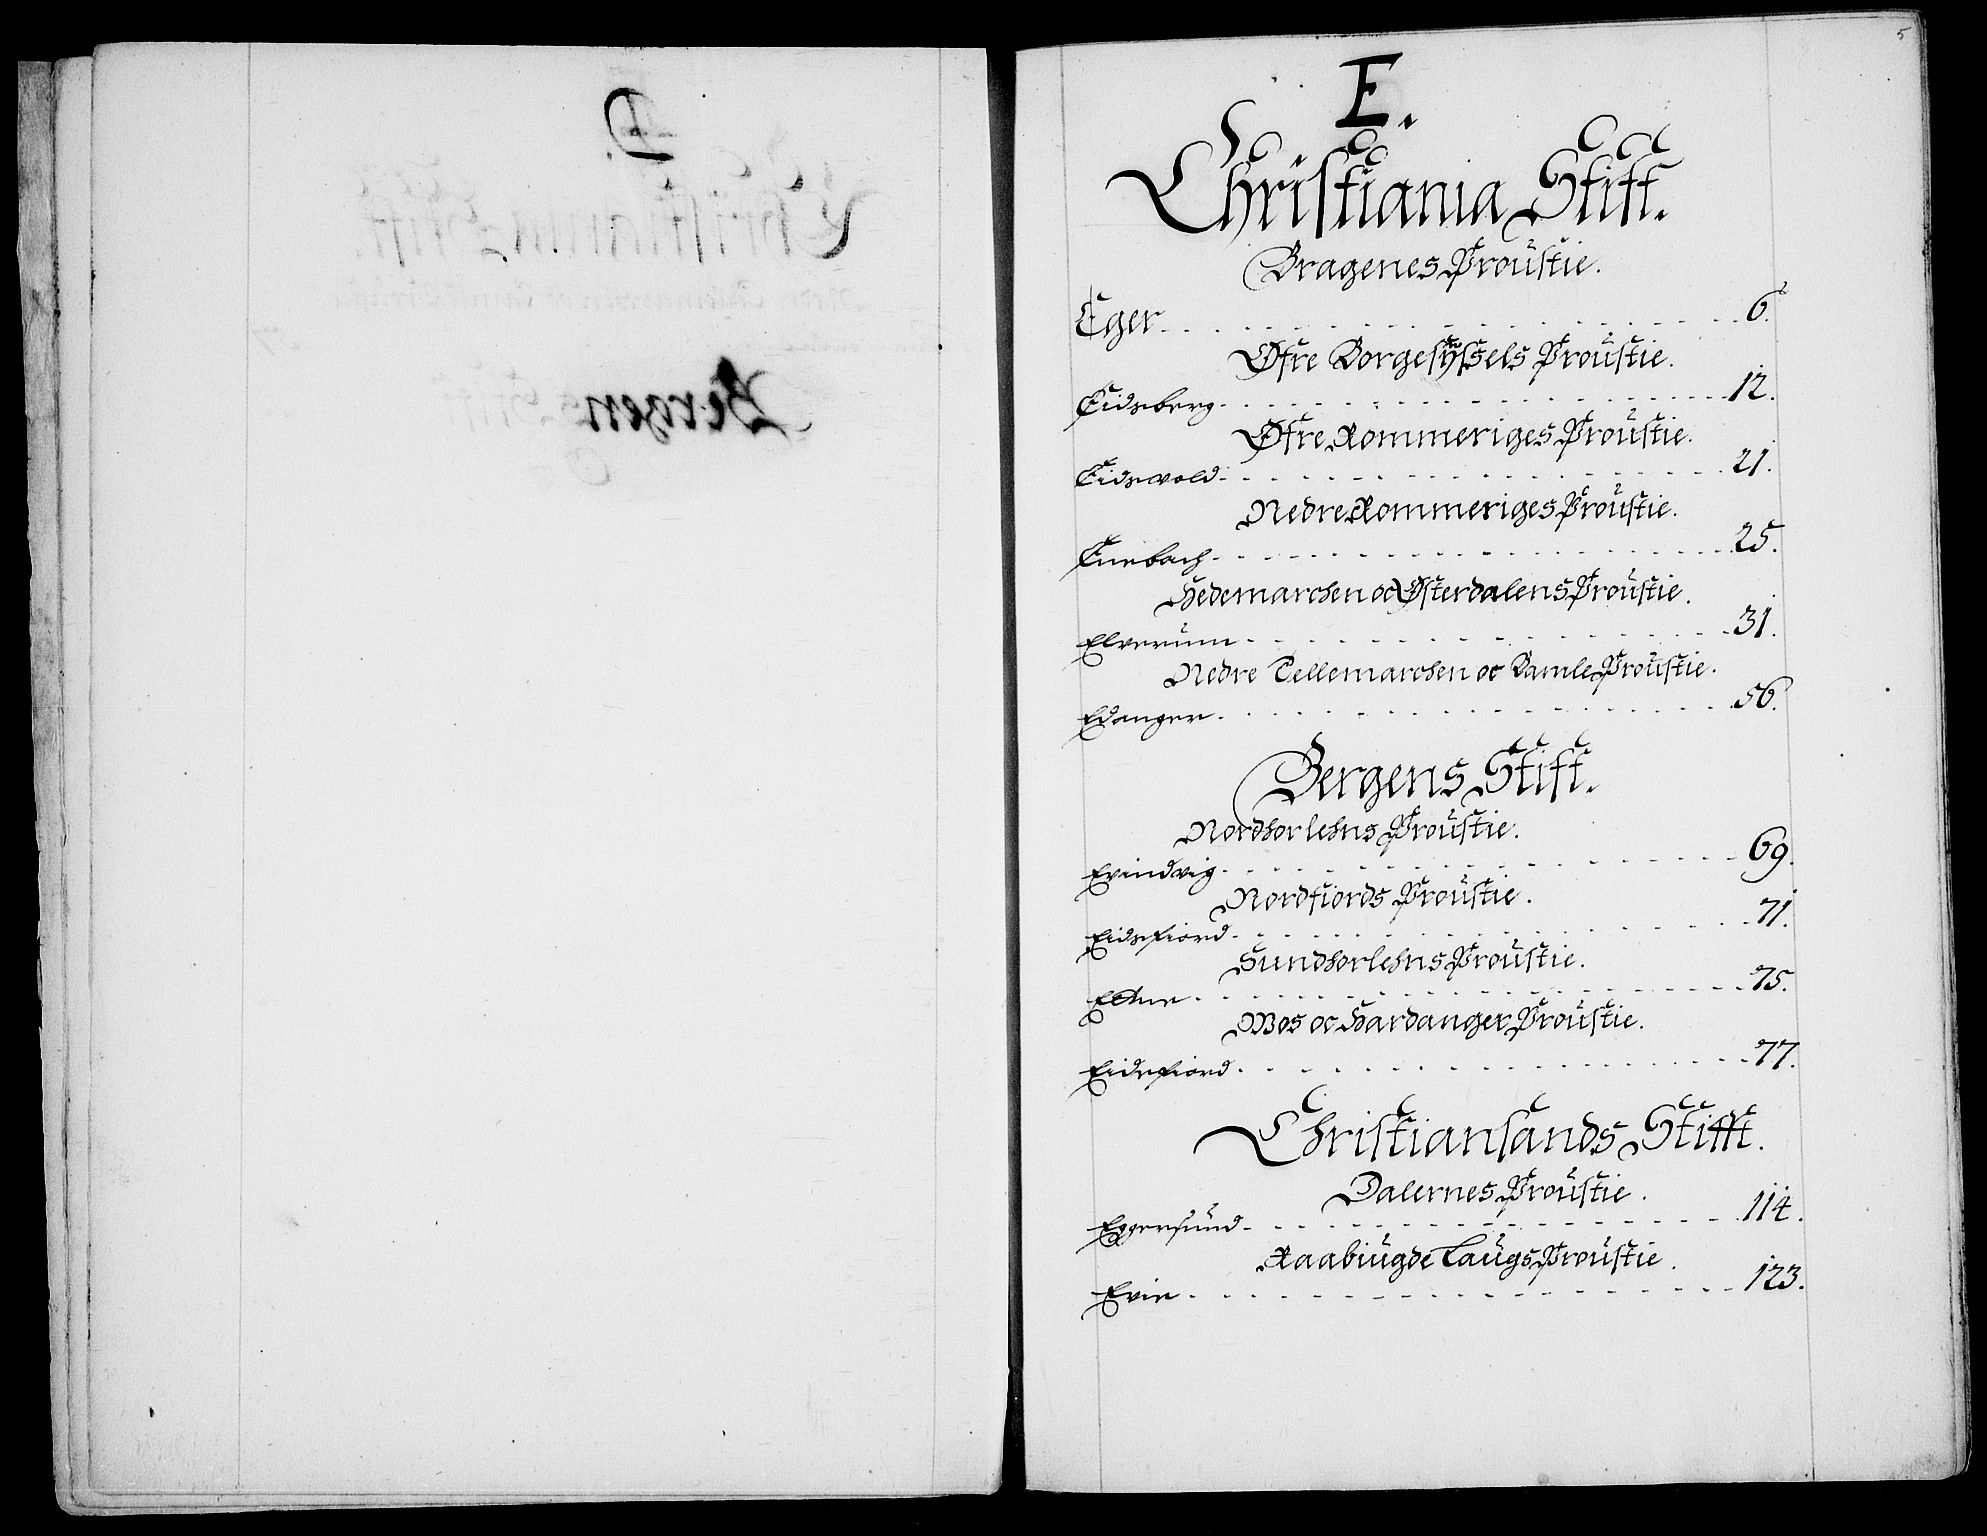 5
E.
Christiania Stift.
Bragenes Proustie.
Eger 6.
Øfre Borgesÿssels Proustie.
Eidsberg 12.
Øfre Rommeriges Proustie.
Eidsvold 21.
Nedre Rommeriges Proustie.
Enebach 25.
Hedemarchen oc Østerdalens Proustie.
Elverum 31.
Nedre Tellemarchen oc Bamle Proustie.
Edanger 56.
Bergens Stift.
Nordhorlehns Proustie.
Evindvig 69.
Nordfiords Proustie.
Eidsfiord 71.
Sundhorlehns Proustie.
Etne 75.
Wos oc Hardanger Proustie.
Eidsfiord 77.
Christiansands Stifft.
Dalernes Proustie.
Eggersund 114.
Raabiugde Laugs Proustie.
Evie 123.